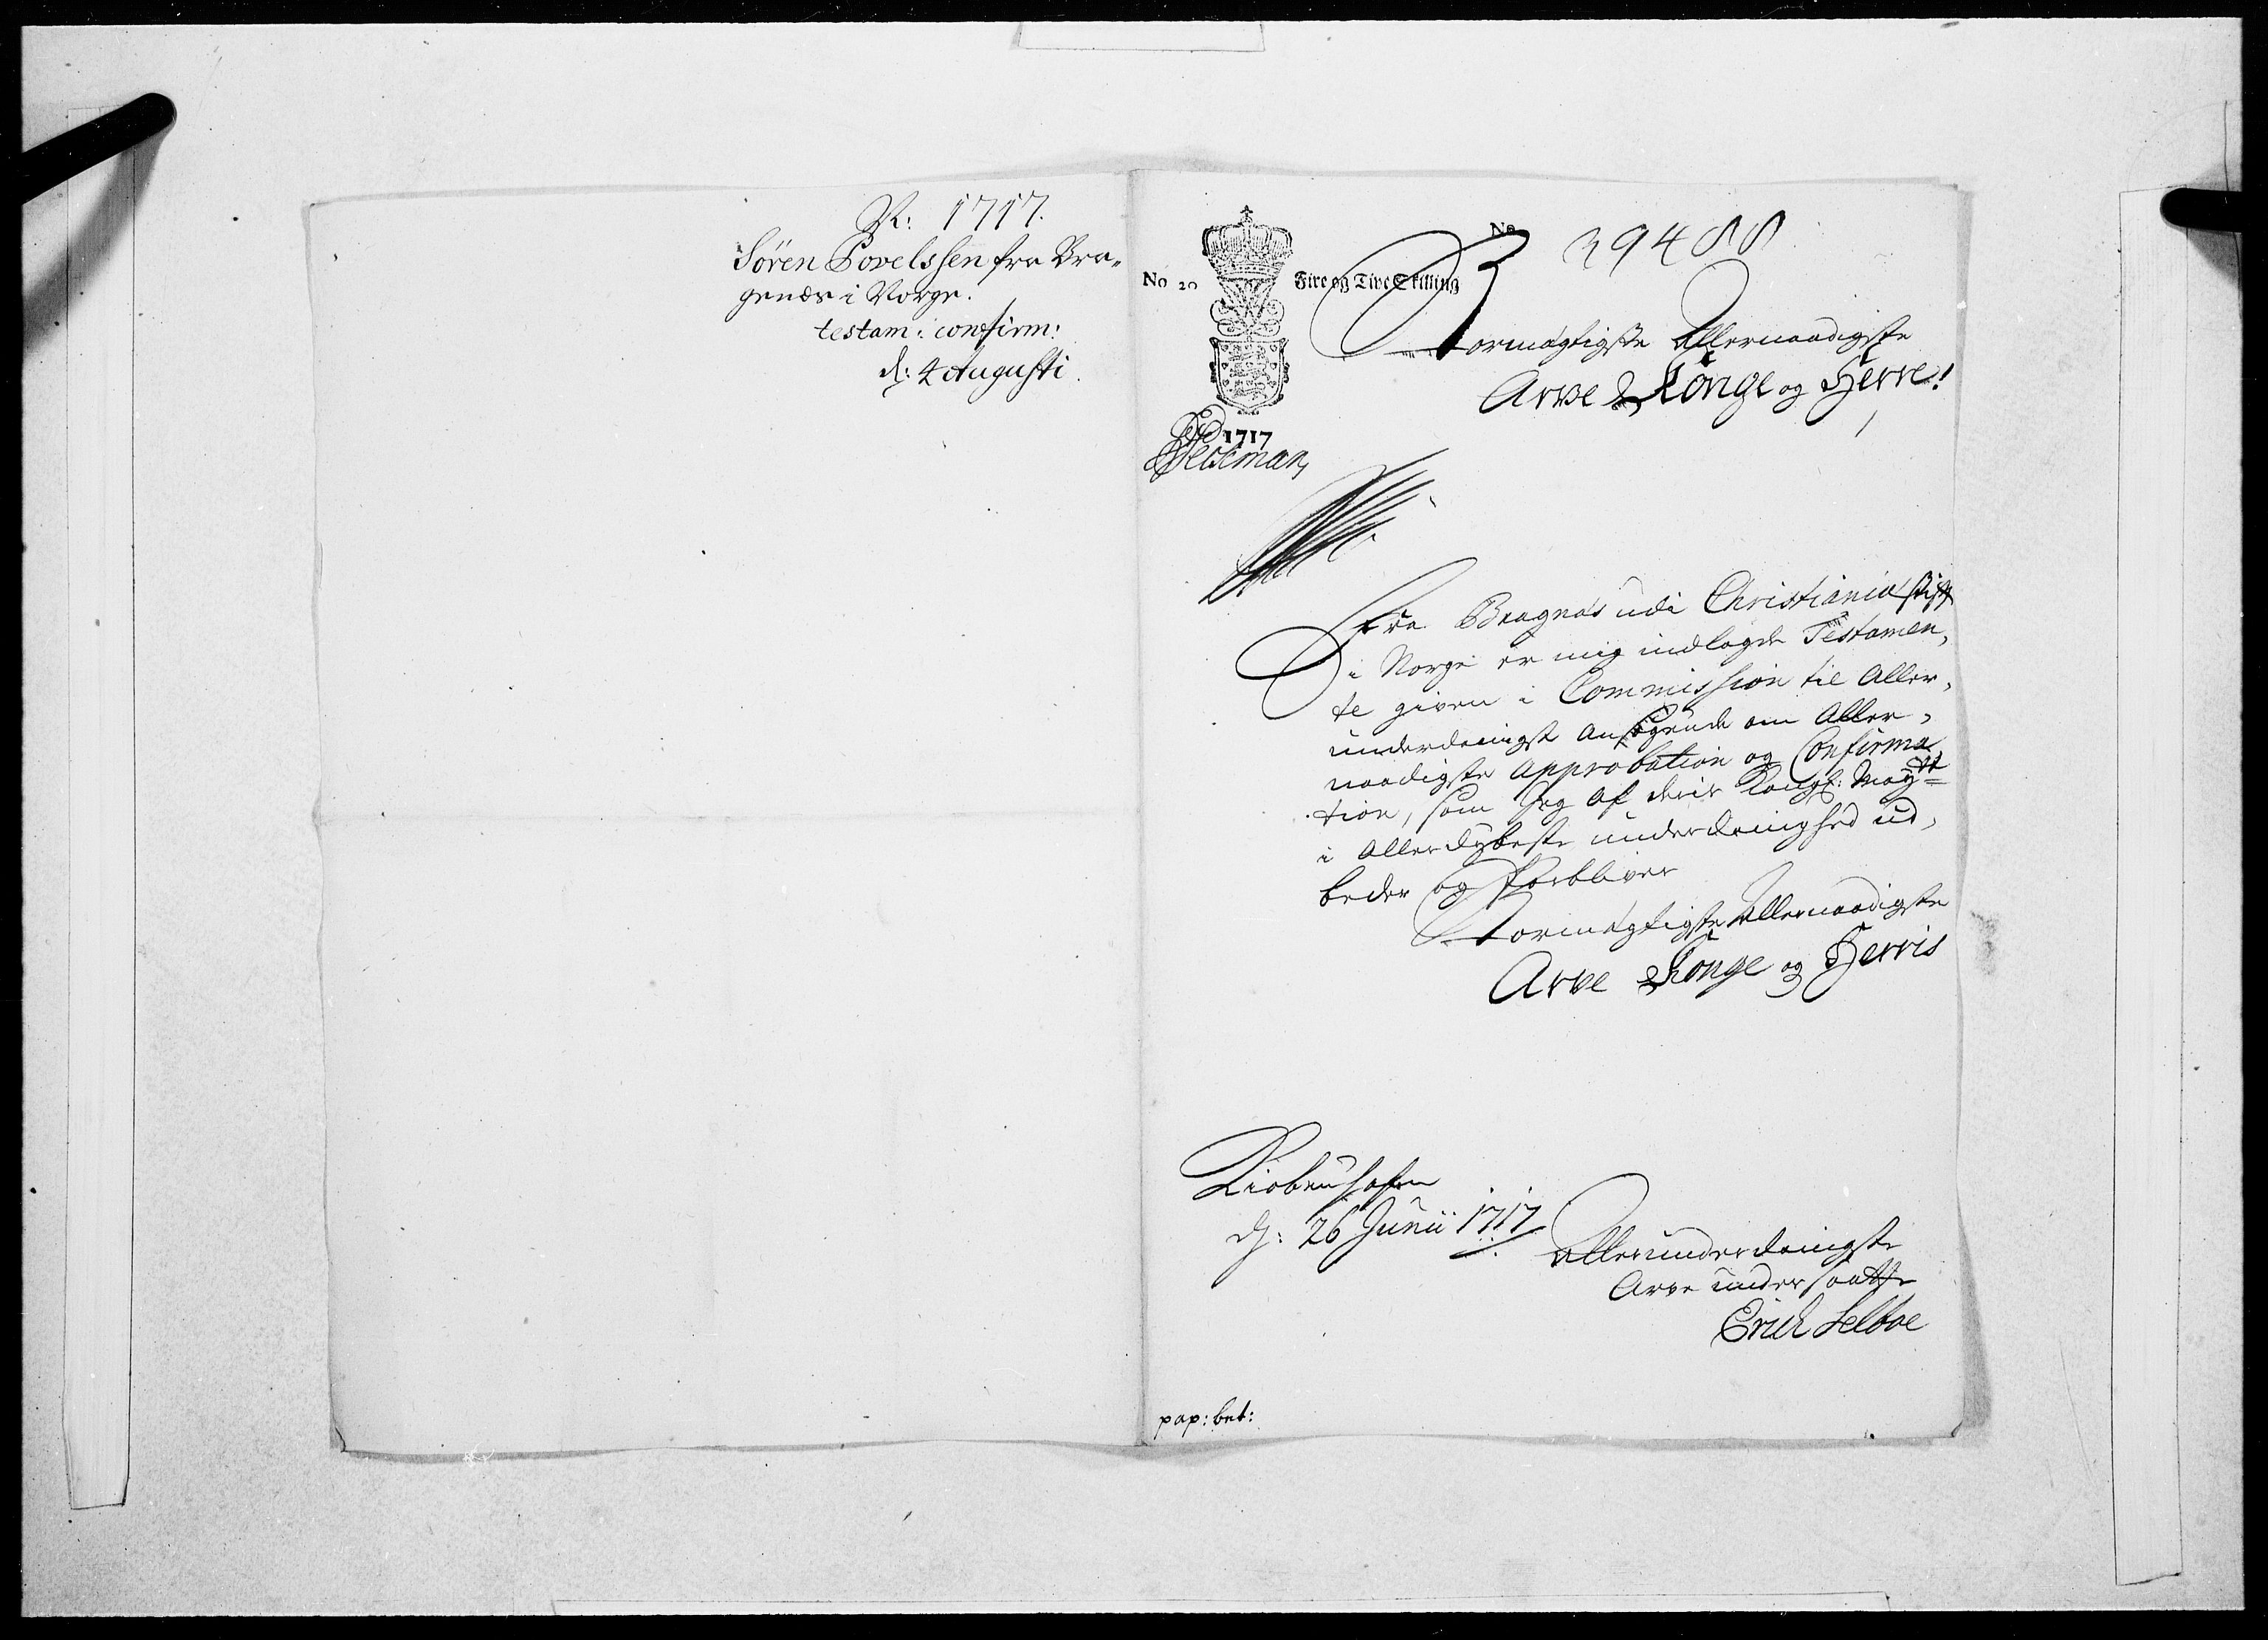 R: 1717.
Sören Povelssen fra Bra-
genæs i Norge.
testam: confirm:
d: 4 Augusti.
No 20
Fire og Tive Skilling
No
39488
1717
Stormægtigste Allernaadigste
Arve Konge og Herre!
Fra Bragnæs udi Christiania stift
i Norge er mig indlagde Testamen-
te given i Commission til Aller-
underdanigst Ansøgende om Aller-
naadigste Approbation og Confirma-
tion, som Jeg af deris Kongl: Maytt
i Allerdybeste underdanighed ud-
beder og forbliver
Stormægtigste Allernaadigste
Arve Konge og Herris
Kiöbenhafn
d: 26 Junii 1717
Allerunderdanigste
Arve undersaatte
Erich Selboe
pap: bet: